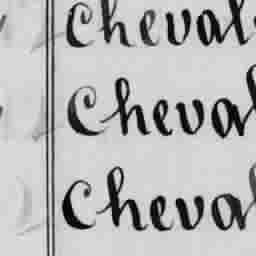 Cheval
Cheval
Cheval